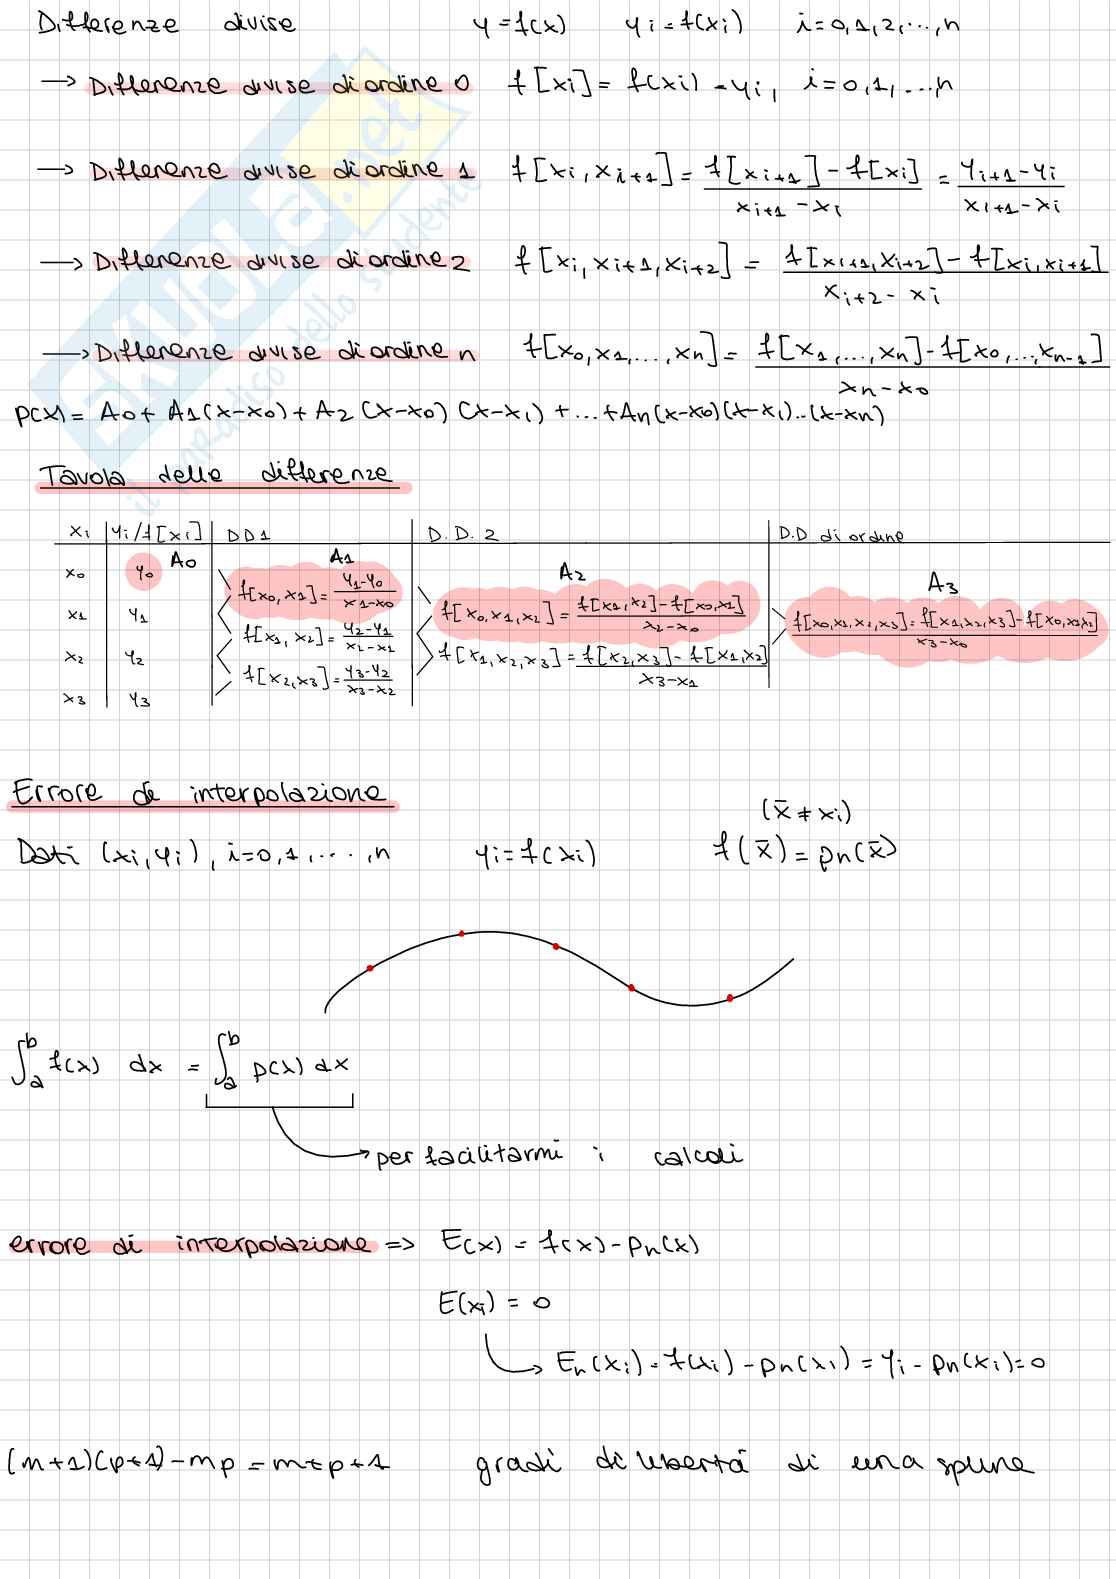 Differenze divise y = f(x) yi = f(xi) i=0,1,2,...,n
→ Differenze divise di ordine 0 f[xi] = f(xi) = yi, i=0,1,...,n
→ Differenze divise di ordine 1 f[xi, xi+1] = (f[xi+1] - f[xi]) / (xi+1 - xi) = (yi+1 - yi) / (xi+1 - xi)
→ Differenze divise di ordine 2 f[xi, xi+1, xi+2] = (f[xi+1, xi+2] - f[xi, xi+1]) / (xi+2 - xi)
→ Differenze divise di ordine n f[x0, x1, ..., xn] = (f[x1, ..., xn] - f[x0, ..., xn-1]) / (xn - x0)
p(x) = A0 + A1(x-x0) + A2(x-x0)(x-x1) + ... + An(x-x0)(x-x1)..(x-xn)
SKUOLA.net
il paradiso dello studente
Tavola delle differenze
xi yi/f[xi] DD1 D.D.2 D.D di ordine
x0 y0 A0 A1 f[x0,x1] = (y1-y0) / (x1-x0) A2 f[x0,x1,x2] = (f[x1,x2] - f[x0,x1]) / (x2-x0) A3 f[x0,x1,x2,x3] = (f[x1,x2,x3] - f[x0,x1,x2]) / (x3-x0)
x1 y1 f[x1,x2] = (y2-y1) / (x2-x1) f[x1,x2,x3] = (f[x2,x3] - f[x1,x2]) / (x3-x1)
x2 y2 f[x2,x3] = (y3-y2) / (x3-x2)
x3 y3
Errore di interpolazione
(x̄ ≠ xi)
Dati (xi, yi), i=0,1,...,n yi = f(xi) f(x̄) = pn(x̄)
∫ab f(x) dx = ∫ab p(x) dx
→ per facilitarmi i calcoli
errore di interpolazione => E(x) = f(x) - pn(x)
E(xi) = 0
→ En(xi) = f(xi) - pn(xi) = yi - pn(xi) = 0
(m+1)(p+1) - mp = m+p+1 gradi di libertà di una spline